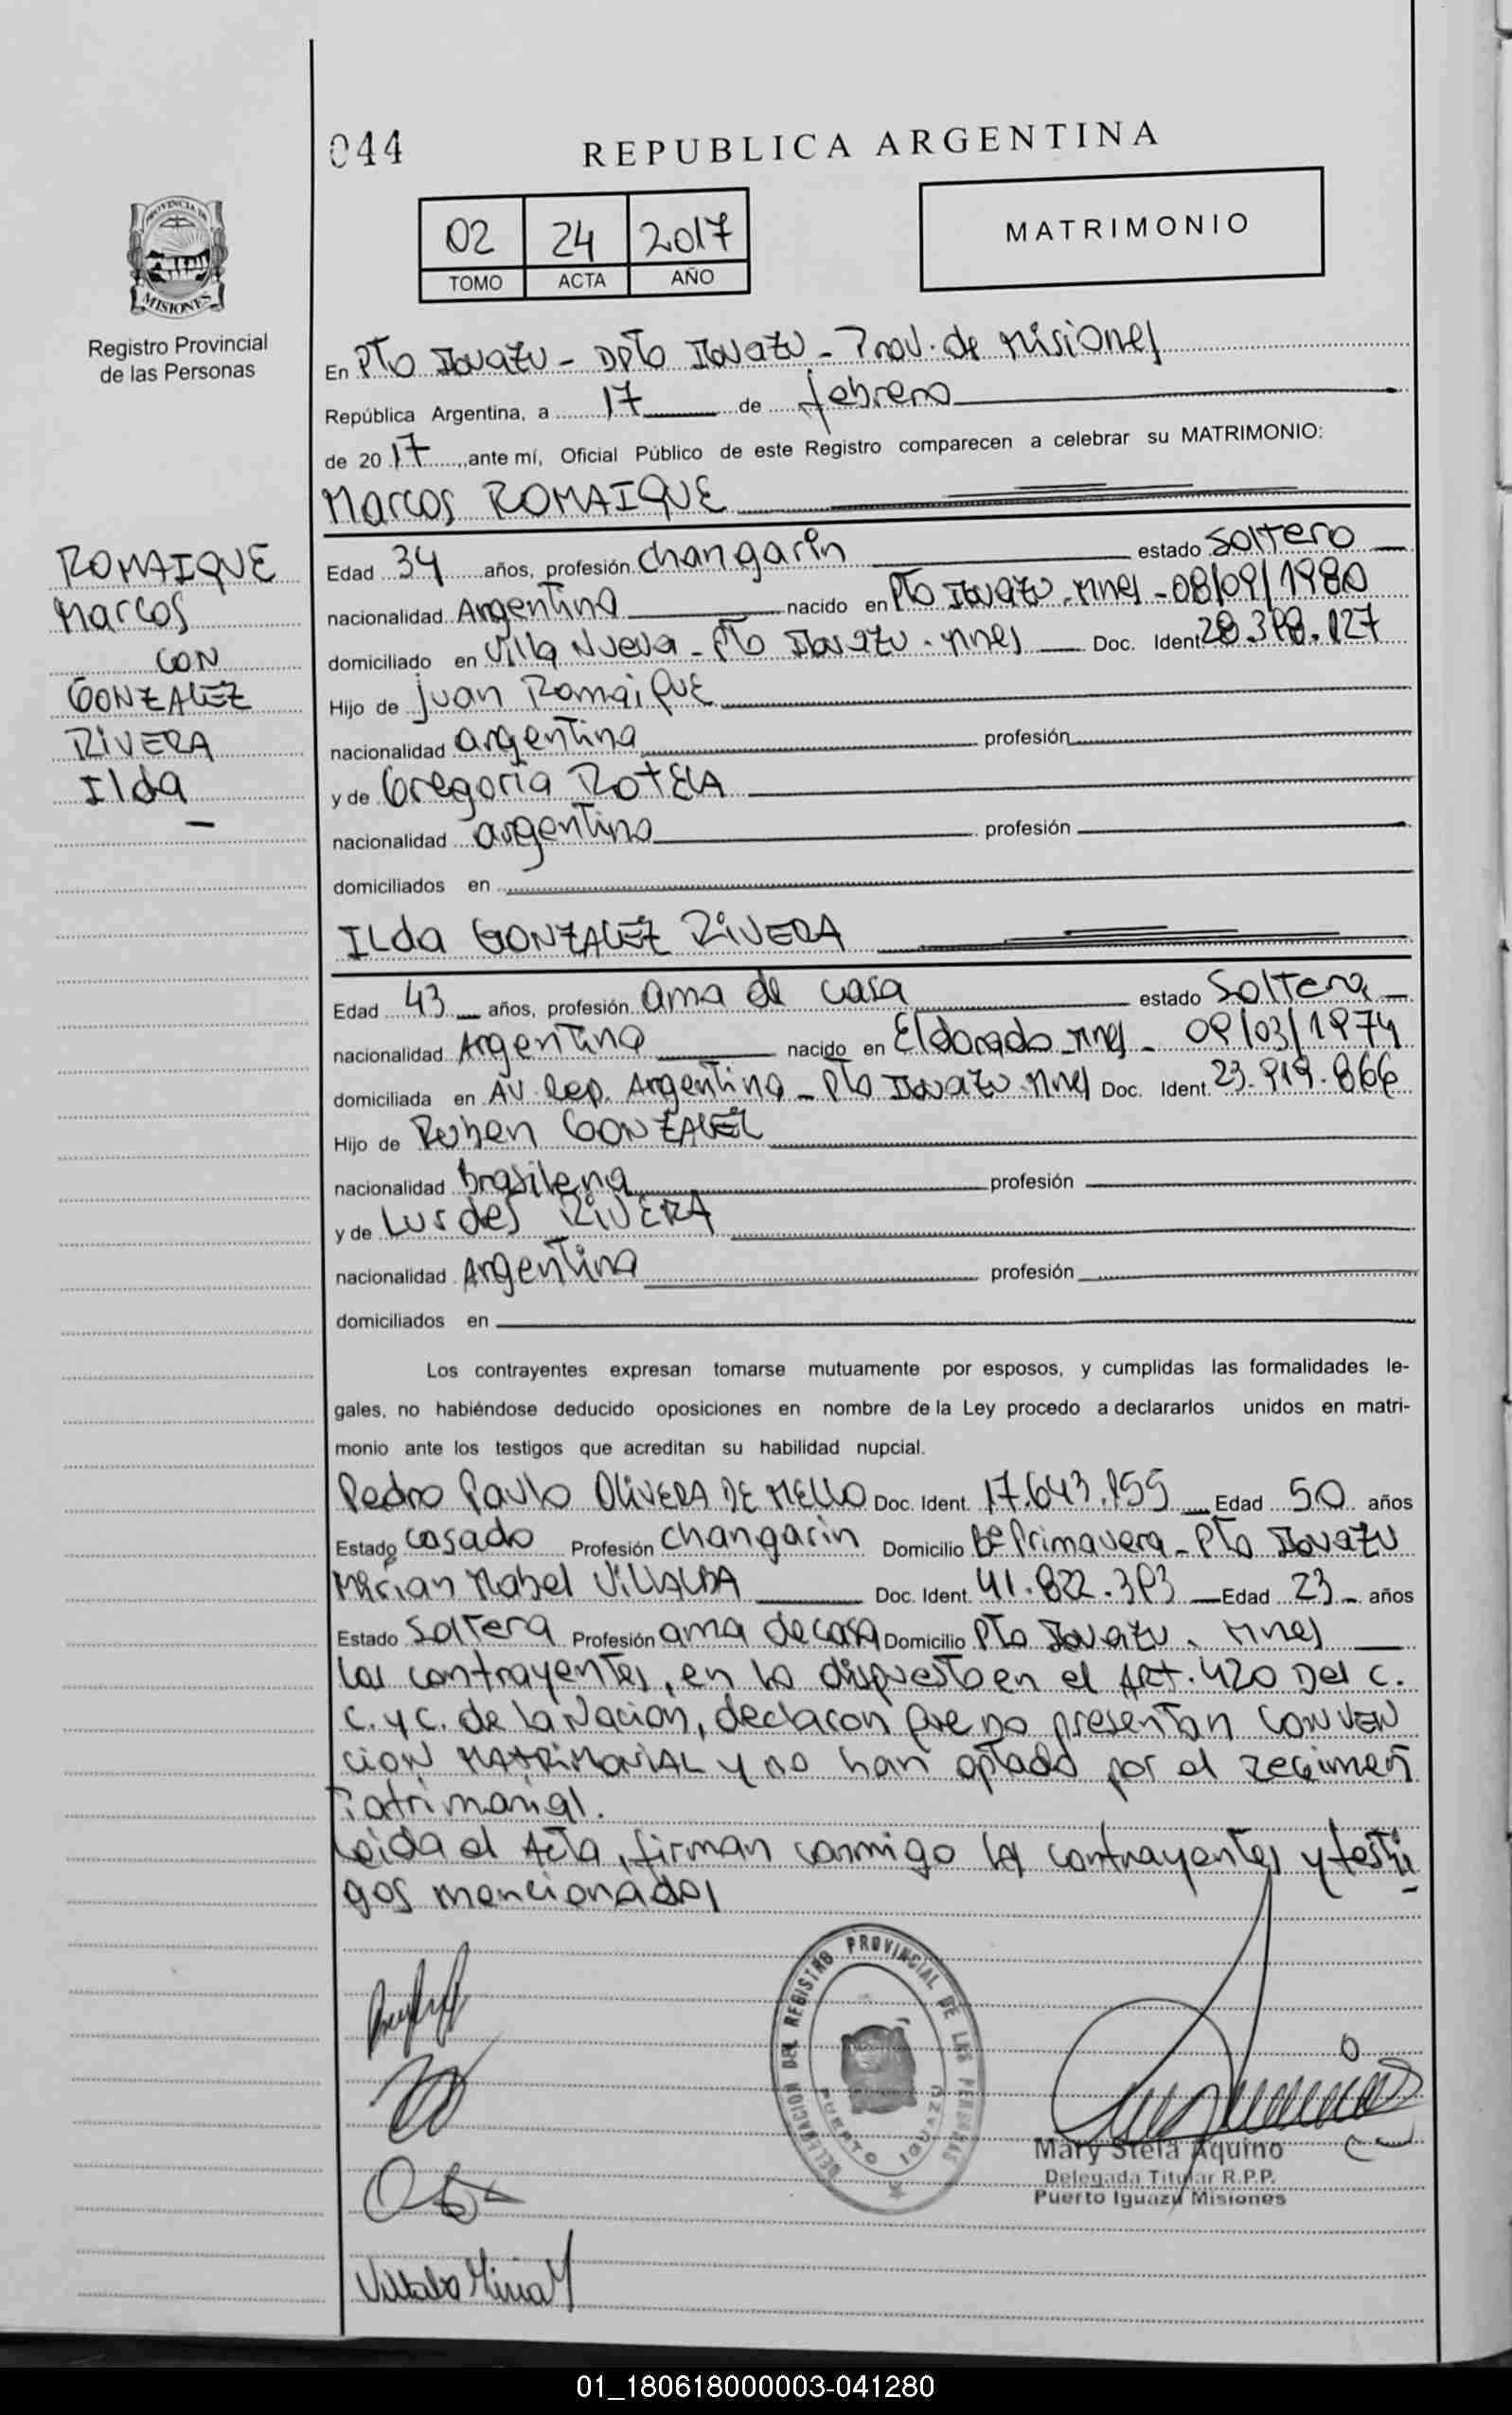 044
REPUBLICA ARGENTINA
02 24 2017
TOMO ACTA AÑO
MATRIMONIO
PROVINCIA DE
MISIONES
Registro Provincial
de las Personas
En Pto Iguazu - Dpto Iguazu - Prov. de Misiones
República Argentina, a 17 de febrero
de 2017, ante mí, Oficial Público de este Registro comparecen a celebrar su MATRIMONIO:
Marcos ROMAIQUE
ROMAIQUE
Marcos
CON
GONZALEZ
RIVERA
Ilda
Edad 34 años, profesión changarin estado soltero
nacionalidad Argentina nacido en Pto Iguazu - Mnes - 08/09/1980
domiciliado en Villa Nueva - Pto Iguazu - Mnes Doc. Ident.
Hijo de Juan Romaique
nacionalidad argentina profesión
y de Gregoria ROTELA
nacionalidad argentina profesión
domiciliados en
ILda GONZALEZ RIVERA
Edad 43 años, profesión ama de casa estado Soltera
nacionalidad Argentina nacido en Eldorado - Mnes - 09/03/1974
domiciliada en AV. Rep. Argentina - Pto Iguazu - Mnes Doc. Ident. 23.919.866
Hijo de Ruben GONZALEZ
nacionalidad Brasilena profesión
y de Lurdes RIVERA
nacionalidad Argentina profesión
domiciliados en
Los contrayentes expresan tomarse mutuamente por esposos, y cumplidas las formalidades le-
gales, no habiéndose deducido oposiciones en nombre de la Ley procedo a declararlos unidos en matri-
monio ante los testigos que acreditan su habilidad nupcial.
Pedro Paulo OLIVERA DE MELLO Doc. Ident. 17.643.955 Edad 50 años
Estado casado Profesión changarin Domicilio Bº Primavera - Pto Iguazu
Mirian Mabel VILLALBA Doc. Ident. 41.822.393 Edad 23 años
Estado Soltera Profesión ama de casa Domicilio Pto Iguazu - Mnes
Los contrayentes, en lo dispuesto en el ART. 420 Del C.
C. y C. de la Nacion, declaron que no presentan CONVEN
CION MATRIMONIAL y no han optado por el regimen
Patrimonial.
Leida el Acta, firman conmigo los contrayentes y testi
gos mencionados
DELEGACION DEL REGISTRO PROVINCIAL DE LAS PERSONAS
PUERTO IGUAZU
Mary Stela Aquino
Delegada Titular R.P.P.
Puerto Iguazú Misiones
Villalba Miria M
01_180618000003-041280